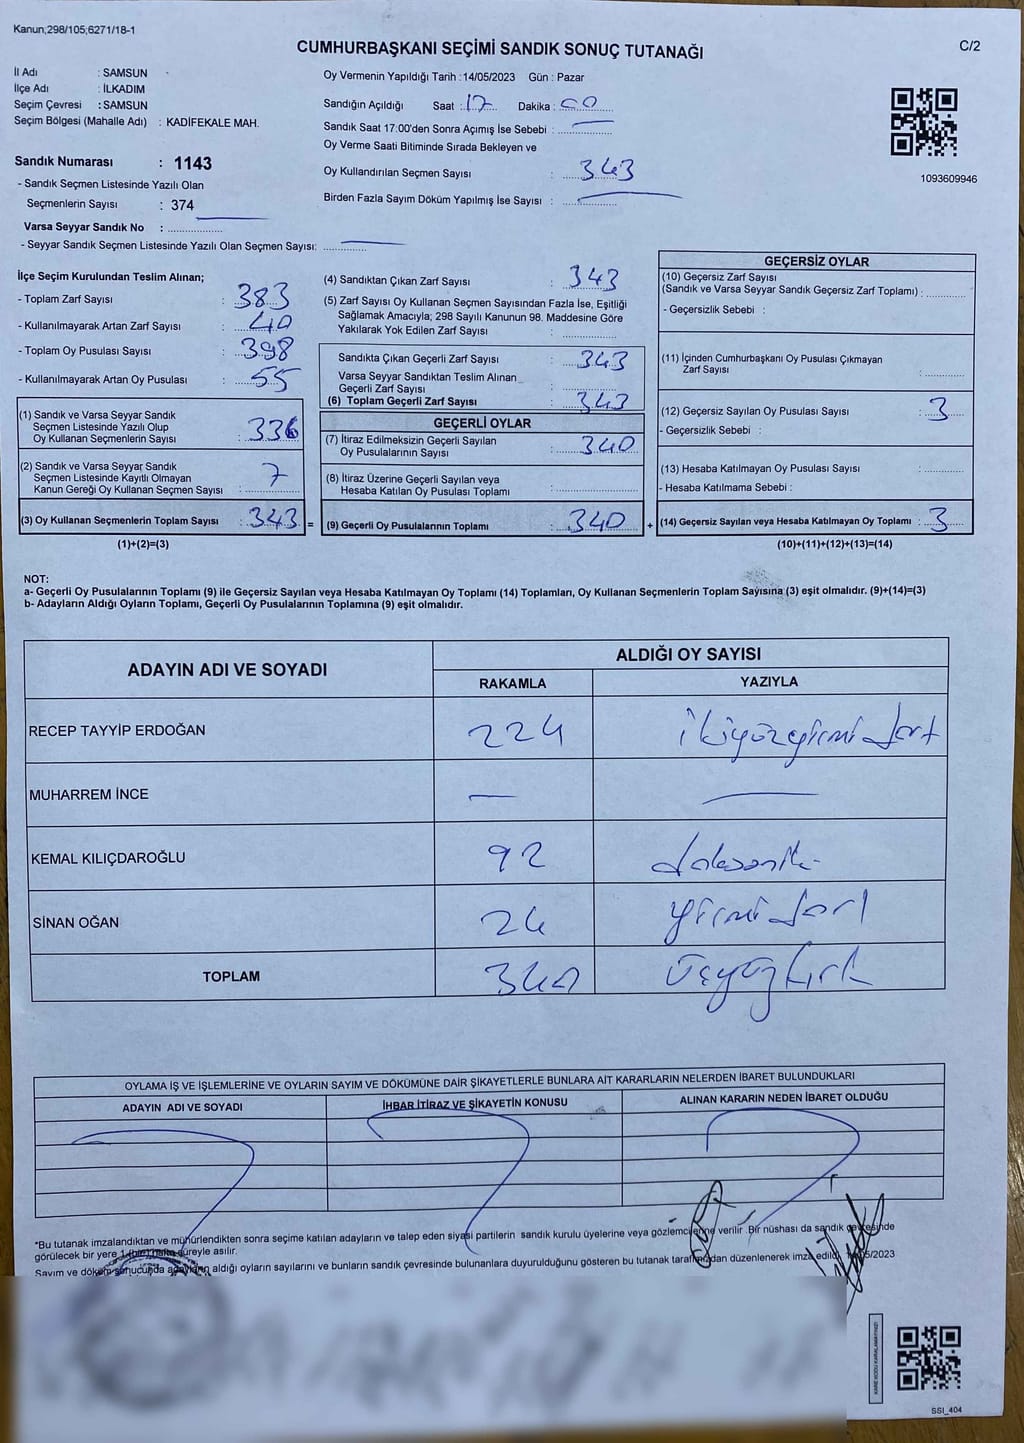 Kanun;298/105;6271/18-1
CUMHURBAŞKANI SEÇİMİ SANDIK SONUÇ TUTANAĞI
C/2
İl Adı : SAMSUN
İlçe Adı : İLKADIM
Seçim Çevresi : SAMSUN
Seçim Bölgesi (Mahalle Adı) : KADİFEKALE MAH.
Sandık Numarası : 1143
- Sandık Seçmen Listesinde Yazılı Olan
Seçmenlerin Sayısı : 374
Varsa Seyyar Sandık No :
- Seyyar Sandık Seçmen Listesinde Yazılı Olan Seçmen Sayısı:
Oy Vermenin Yapıldığı Tarih : 14/05/2023 Gün : Pazar
Sandığın Açıldığı Saat : 17 Dakika : 00
Sandık Saat 17:00'den Sonra Açımış İse Sebebi :
Oy Verme Saati Bitiminde Sırada Bekleyen ve
Oy Kullandırılan Seçmen Sayısı : 343
Birden Fazla Sayım Döküm Yapılmış İse Sayısı :
1093609946
İlçe Seçim Kurulundan Teslim Alınan;
- Toplam Zarf Sayısı : 383
- Kullanılmayarak Artan Zarf Sayısı : 40
- Toplam Oy Pusulası Sayısı : 398
- Kullanılmayarak Artan Oy Pusulası : 55
(1) Sandık ve Varsa Seyyar Sandık
Seçmen Listesinde Yazılı Olup
Oy Kullanan Seçmenlerin Sayısı : 336
(2) Sandık ve Varsa Seyyar Sandık
Seçmen Listesinde Kayıtlı Olmayan
Kanun Gereği Oy Kullanan Seçmen Sayısı : 7
(3) Oy Kullanan Seçmenlerin Toplam Sayısı : 343 =
(1)+(2)=(3)
(4) Sandıktan Çıkan Zarf Sayısı : 343
(5) Zarf Sayısı Oy Kullanan Seçmen Sayısından Fazla İse, Eşitliği
Sağlamak Amacıyla; 298 Sayılı Kanunun 98. Maddesine Göre
Yakılarak Yok Edilen Zarf Sayısı :
Sandıkta Çıkan Geçerli Zarf Sayısı : 343
Varsa Seyyar Sandıktan Teslim Alınan
Geçerli Zarf Sayısı :
(6) Toplam Geçerli Zarf Sayısı : 343
GEÇERLİ OYLAR
(7) İtiraz Edilmeksizin Geçerli Sayılan
Oy Pusulalarının Sayısı : 340
(8) İtiraz Üzerine Geçerli Sayılan veya
Hesaba Katılan Oy Pusulası Toplamı :
(9) Geçerli Oy Pusulalarının Toplamı : 340 +
GEÇERSİZ OYLAR
(10) Geçersiz Zarf Sayısı
(Sandık ve Varsa Seyyar Sandık Geçersiz Zarf Toplamı) :
- Geçersizlik Sebebi :
(11) İçinden Cumhurbaşkanı Oy Pusulası Çıkmayan
Zarf Sayısı :
(12) Geçersiz Sayılan Oy Pusulası Sayısı : 3
- Geçersizlik Sebebi :
(13) Hesaba Katılmayan Oy Pusulası Sayısı :
- Hesaba Katılmama Sebebi :
(14) Geçersiz Sayılan veya Hesaba Katılmayan Oy Toplamı : 3
(10)+(11)+(12)+(13)=(14)
NOT:
a- Geçerli Oy Pusulalarının Toplamı (9) ile Geçersiz Sayılan veya Hesaba Katılmayan Oy Toplamı (14) Toplamları, Oy Kullanan Seçmenlerin Toplam Sayısına (3) eşit olmalıdır. (9)+(14)=(3)
b- Adayların Aldığı Oyların Toplamı, Geçerli Oy Pusulalarının Toplamına (9) eşit olmalıdır.
ADAYIN ADI VE SOYADI ALDIĞI OY SAYISI
RAKAMLA YAZIYLA
RECEP TAYYİP ERDOĞAN 224 ikiyüzyirmidört
MUHARREM İNCE —
KEMAL KILIÇDAROĞLU 92 doksaniki
SİNAN OĞAN 24 yirmidört
TOPLAM 340 üçyüzkırk
OYLAMA İŞ VE İŞLEMLERİNE VE OYLARIN SAYIM VE DÖKÜMÜNE DAİR ŞİKAYETLERLE BUNLARA AİT KARARLARIN NELERDEN İBARET BULUNDUKLARI
ADAYIN ADI VE SOYADI İHBAR İTİRAZ VE ŞİKAYETİN KONUSU ALINAN KARARIN NEDEN İBARET OLDUĞU
*Bu tutanak imzalandıktan ve mühürlendikten sonra seçime katılan adayların ve talep eden siyasi partilerin sandık kurulu üyelerine veya gözlemcilerine verilir. Bir nüshası da sandık çevresinde
görülecek bir yere 1 (bir) hafta süreyle asılır.
Sayım ve döküm sonucunda adayların aldığı oyların sayılarını ve bunların sandık çevresinde bulunanlara duyurulduğunu gösteren bu tutanak tarafımızdan düzenlenerek imza edildi.
KARE KODU KARALAMAYINIZ!
SSI_404